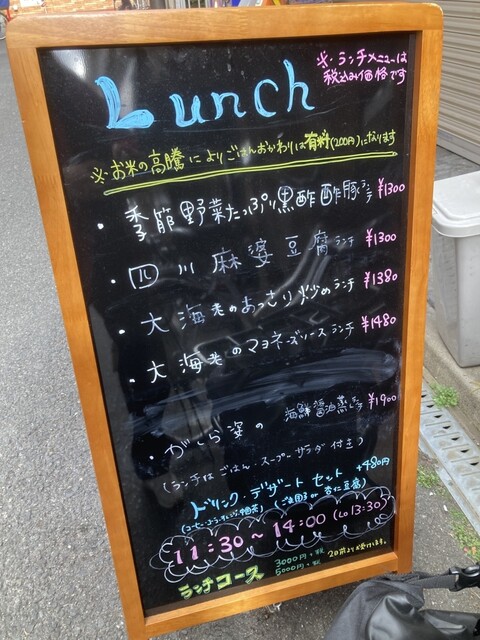 Lunch
※ランチメニューは
税込み価格です
※お米の高騰によりごはんおかわりは有料(200円)になります
・季節野菜たっぷり黒酢酢豚ランチ ¥1300
・四川麻婆豆腐ランチ ¥1300
・大海老のあっさり炒めランチ ¥1380
・大海老のマヨネーズソースランチ ¥1480
・がしら姿の海鮮醤油蒸しランチ ¥1900
(ランチはごはん・スープ・サラダ付き)
ドリンク・デザートセット +480円
(コーヒー・
(ごま団子or杏仁豆腐)
11:30~14:00 (LO 13:30)
ランチコース 3000円+税
5000円+税
2日前まで